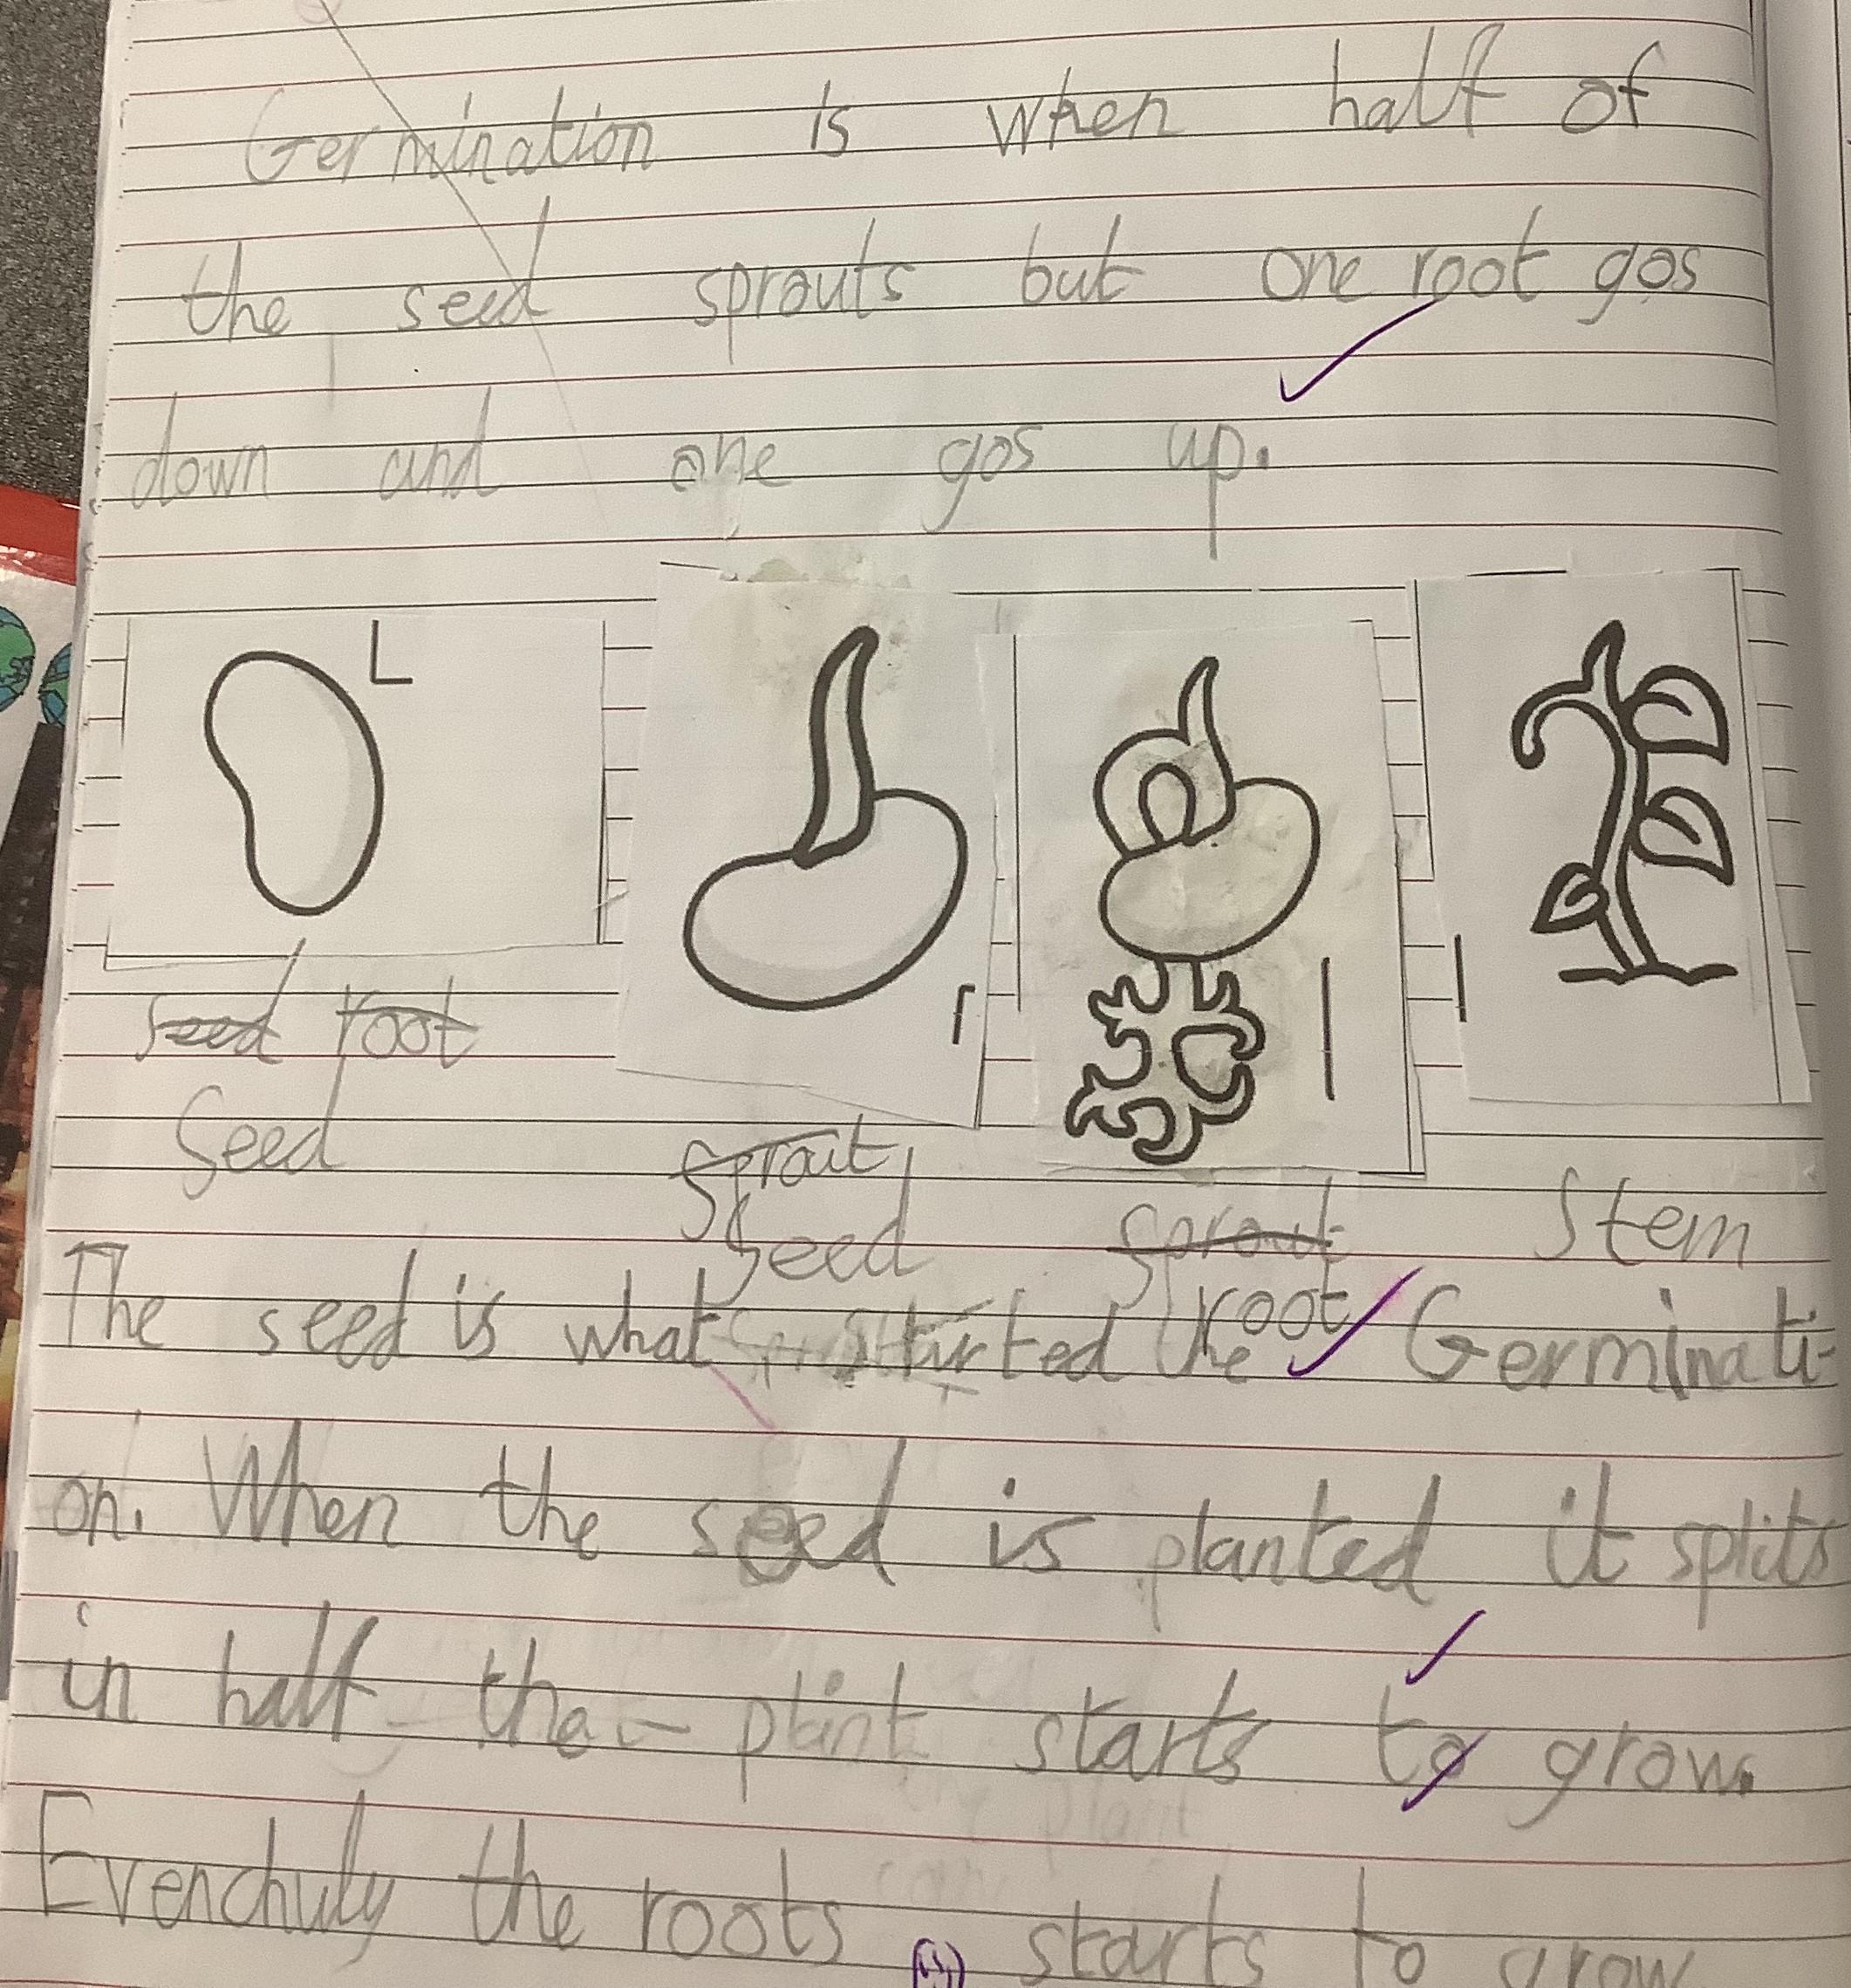 Germination is when half of
the seed sprouts but one root gos
down and one gos up.
seed root
Seed
Sprout
Seed
sprout
root
Stem
The seed is what started the Germinati-
on. When the seed is planted it splits
in half - the - plant starts to grow.
Evenchuly the roots starts to grow